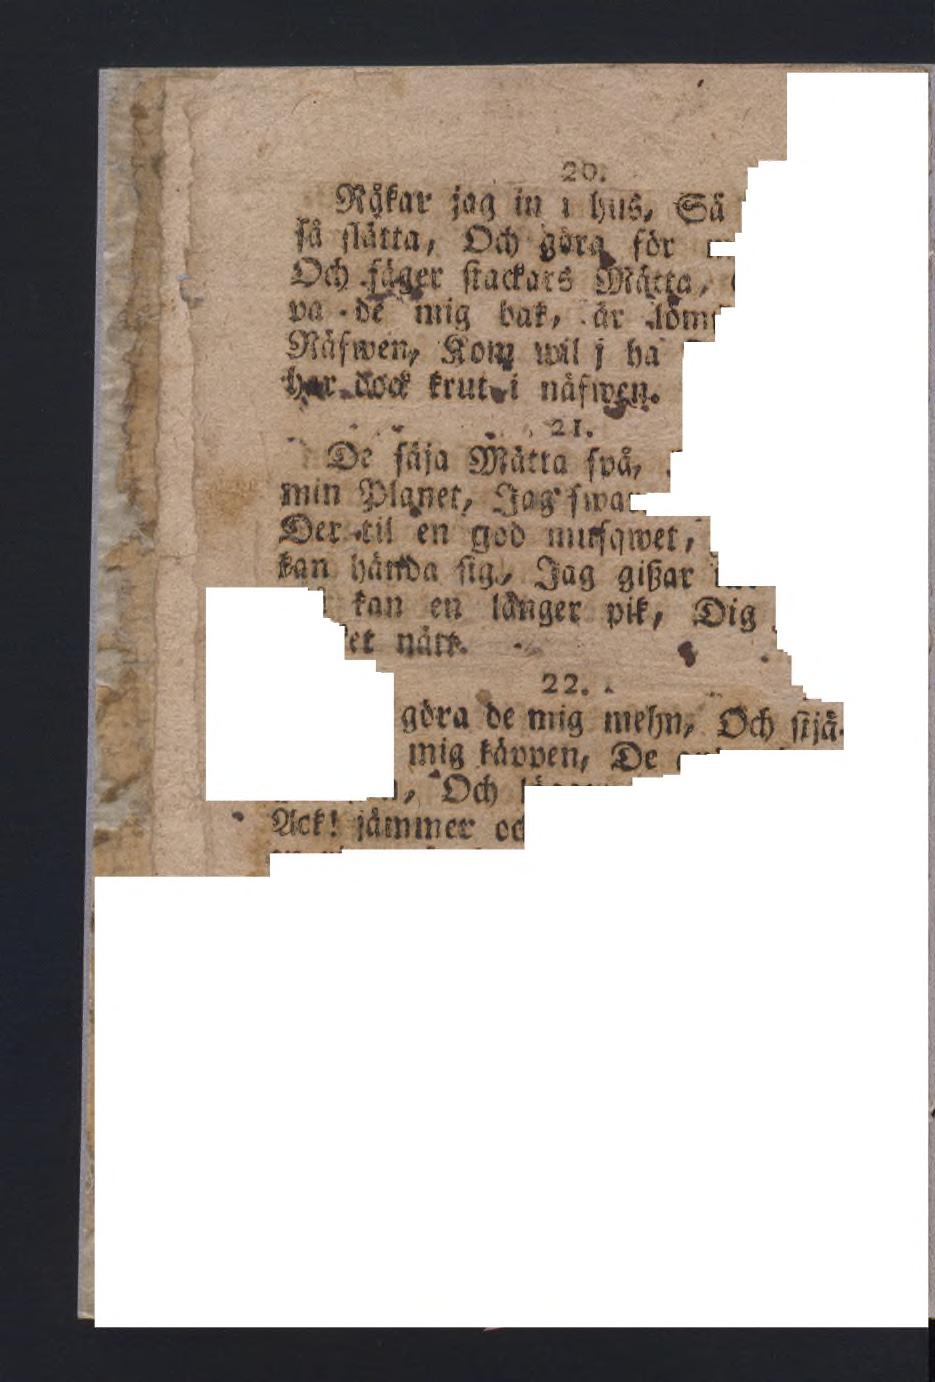 20.
Råkar jag in i hus, Så
så slätta, Och göra för
Och säger stackars Mätta,
pa de mig bak, är
Näfwen, Kom wil j ha
har dock krut i näfwen.
21.
De säja Mätta spå,
min Planet, Jag
Der til en god musqwet,
kan hända sig, Jag gißar
kan en länger pik, Dig
nätt.
22.
göra de mig mehn, Och stjä-
mig käppen, De
Och
Ack! jämmer